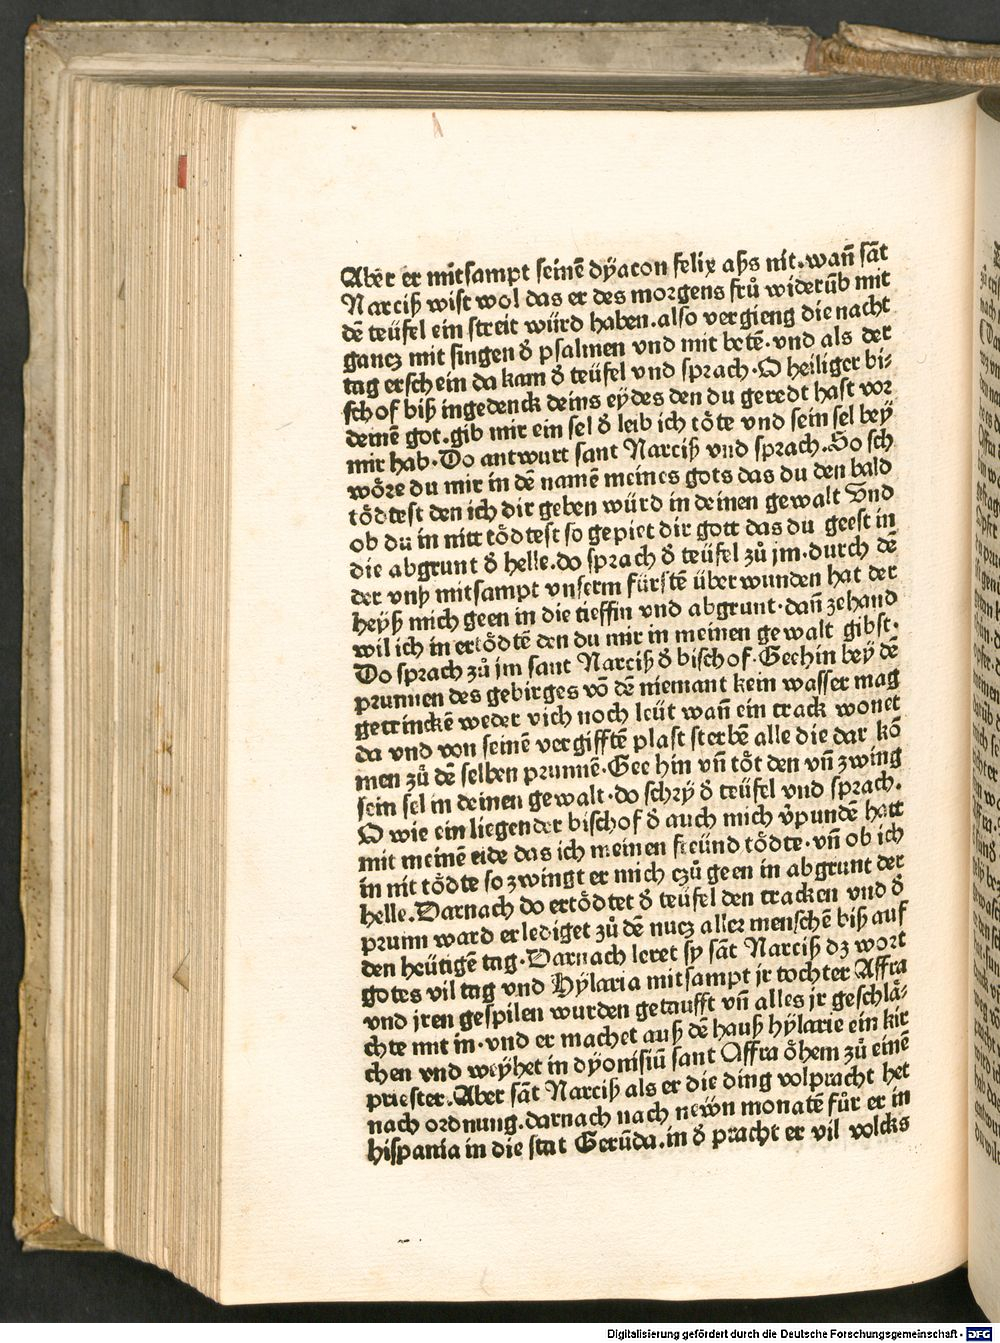 Aber er mitsampt seinē dÿacon felix aßs nit.wañ sāt
Narciß wist wol das er des morgens frů widerūb mit
dē teüfel ein streit würd haben.also vergieng die nacht
gancz mit singen ð psalmen vnd mit betē.vnd als der
tag erschein da kam ð teüfel vnd sprach.O heiliger bi-
schof biß ingedenck deins eydes den du geredt hast vor
deinē got.gib mir ein sel ð leib ich tȫte vnd sein sel beÿ
mir hab.Do antwurt sant Narciß vnd sprach.So sch
wöre du mir in dē namē meines gots das du den bald
tödtest den ich dir geben würd in deinen gewalt Vnd
ob du in nitt tödtest so gepiet dir gott das du geest in
die abgrunt ð helle.do sprach ð teüfel zů jm.durch dē
der vnß mitsampt vnserm fürstē überwunden hat der
heÿß mich geen in die tieffin vnd abgrunt.dañ zehand
wil ich in ertödtē den du mir in meinen gewalt gibst.
Do sprach zů jm sant Narciß ð bischof.Geehin bey dē
prunnen des gebirges vō dē niemant kein wasser mag
getrinckē weder vich noch leüt wañ ein track wonet
da vnd von seinē vergifftē plast sterbē alle die dar kō
men zů dē selben prunnē.Gee hin vñ töt den vñ zwing
sein sel in deinen gewalt.do schrÿ ð teüfel vnd sprach.
O wie ein liegender bischof ð auch mich v̄pundē hatt
mit meinē eide das ich meinen freünd tödte.vñ ob ich
in nit tödte so zwingt er mich czů geen in abgrunt der
helle.Darnach do ertödtet ð teüfel den tracken vnd ð
prunn ward erlediget zů dē nucz aller menschē biß auf
den heütigē tag.Darnach leret sy sāt Narciß dz wort
gotes vil tag vnd Hÿlaria mitsampt jr tochter Affra
vnd jren gespilen wurden getaufft vñ alles jr geschlä-
chte mit in.vnd er machet auß dē hauß hÿlarie ein kir
chen vnd weÿhet in dÿonisiū sant Affra öhem zů einē
priester.Aber sāt Narciß als er die ding volpracht het
nach ordnung.darnach nach neẅn monatē fůr er in
hispania in die stat Gerūda.in ð pracht er vil volcks
Digitalisierung gefördert durch die Deutsche Forschungsgemeinschaft - DFG